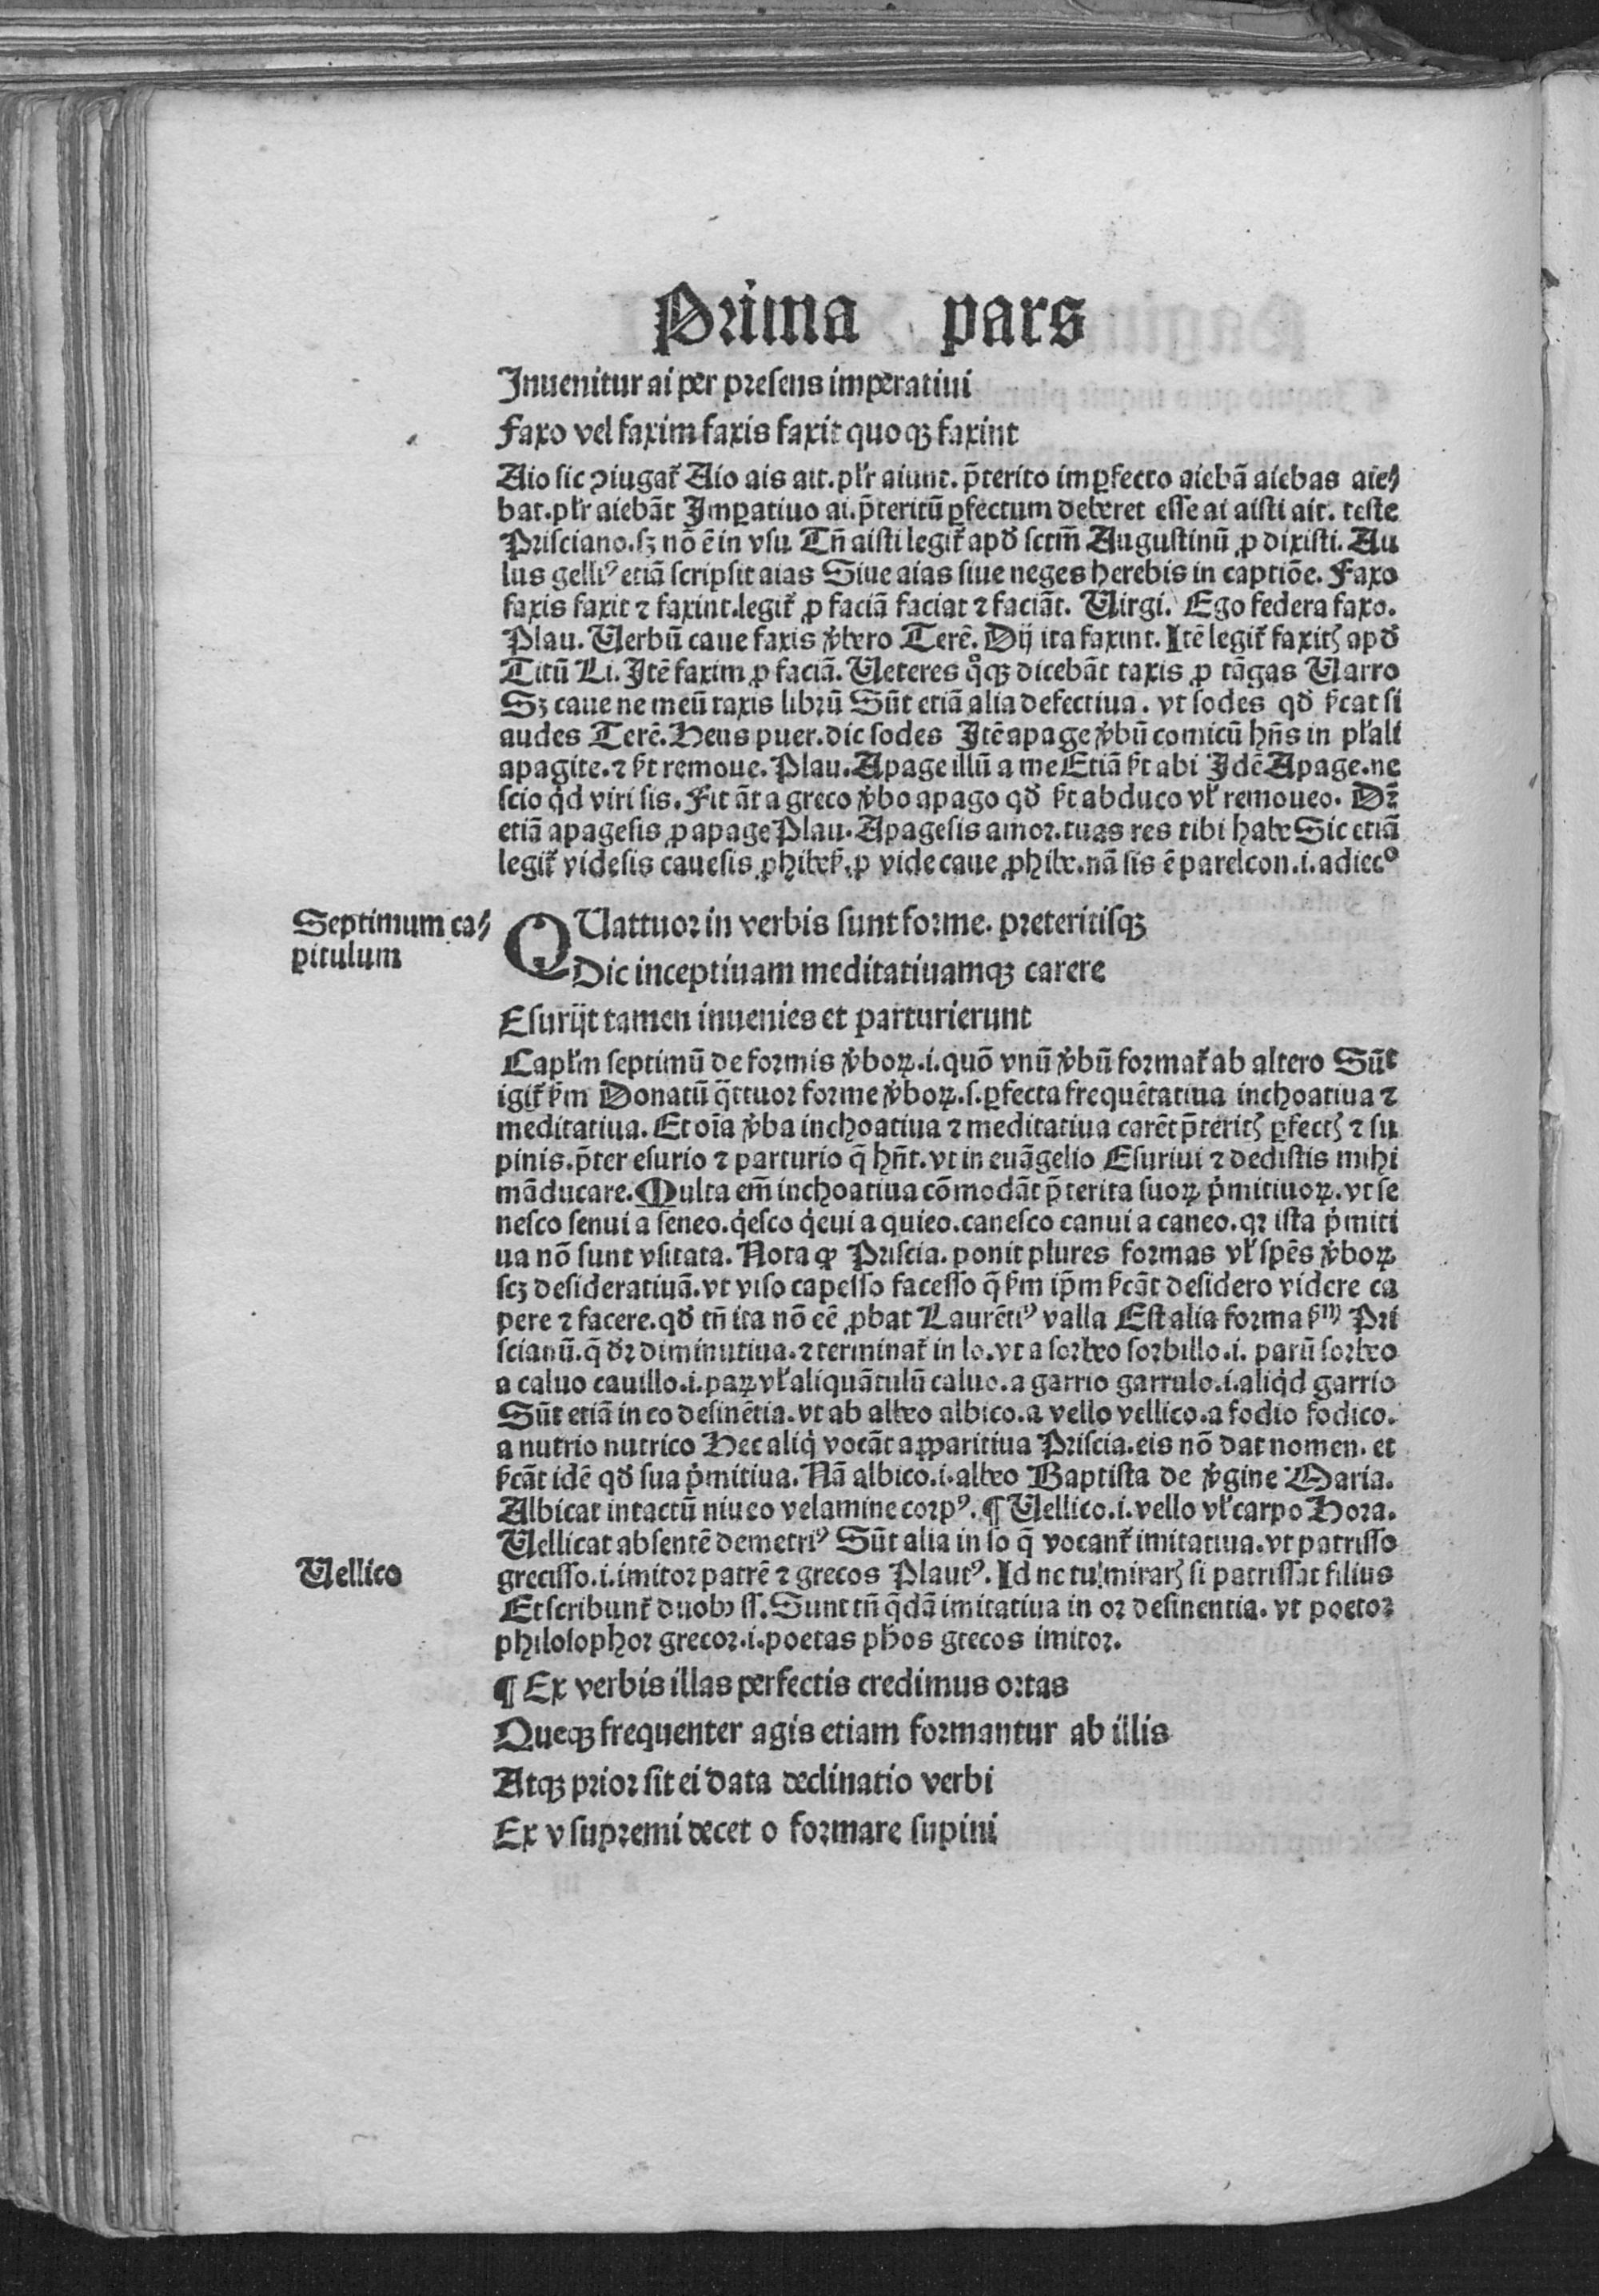 Prima pars
Inuenitur ai per presens imperatiui
Faxo vel faxim faxis faxit quoqꝫ faxint
Aio sic ꝯiugat᷑ Aio ais ait. plr̄ aiunt. p̄terito imꝑfecto aiebā aiebas aie⸗
bat. plr̄ aiebāt Imꝑatiuo ai. p̄teritū ꝑfectum deberet esse ai aisti ait. teste
Prisciano. sꝫ nō ē in vsu Tn̄ aisti legit᷑ apđ sctm̄ Augustinū ꝓ dixisti. Au
lus gelliꝰ etiā scripsit aias Siue aias siue neges herebis in captiōe. Faxo
faxis faxit ⁊ faxint. legit᷑ ꝓ faciā faciat ⁊ faciāt. Uirgi. Ego federa faxo.
Plau. Uerbū caue faxis v̓bero Terē. Dij ita faxint. Itē legit᷑ faxitꝭ apđ
Titū Li. Itē faxim ꝓ faciā. Ueteres qͦqꝫ dicebāt taxis ꝓ tāgas Uarro
Sꝫ caue ne meū taxis librū Sūt etiā alia defectiua. vt sodes qđ ſ̓cat si
audes Terē. Heus puer. dic sodes Itē apage v̓bū comicū hn̄s in pl̓ali
apagite. ⁊ ſ̓t remoue. Plau. Apage illū a me Etiā ſ̓t abi Idē Apage. ne
scio qͥd viri sis. Fit āt a greco v̓bo apago qđ ſ̓t abduco vl̓ remoueo. Dr̄
etiā apagesis ꝓ apage Plau. Apagesis amor. tuas res tibi habe Sic etiā
legit᷑ videsis cauesis ꝓhibeſ̓. ꝓ vide caue ꝓhibe. nā sis ē parelcon. i. adiecͦ
Septimum ca⸗
pitulum
QUattuor in verbis sunt forme. preteritisqꝫ
Dic inceptiuam meditatiuamqꝫ carere
Esurijt tamen inuenies et parturierunt
Capl̓m septimū de formis v̓boꝝ. i. quō vnū v̓bū format᷑ ab altero Sūt
igit᷑ ſ̓m Donatū q̄ttuor forme v̓boꝝ. s. ꝑfecta frequētatiua inchoatiua ⁊
meditatiua. Et oīa v̓ba inchoatiua ⁊ meditatiua carēt p̄teritꝭ ꝑfectꝭ ⁊ su
pinis. p̄ter esurio ⁊ parturio q̄ hn̄t. vt in euāgelio Esuriui ⁊ dedistis mihi
māducare. Multa em̄ inchoatiua cōmodāt p̄terita suoꝝ pͥmitiuoꝝ. vt se
nesco senui a seneo. qͥesco qͥeui a quieo. canesco canui a caneo. qꝛ ista pͥmiti
ua nō sunt vsitata. Nota ꝙ Priscia. ponit plures formas vl̓ spēs v̓boꝝ
scꝫ desideratiuā. vt viso capesso facesso q̄ ſ̓m ip̄m ſ̓cāt desidero videre ca
pere ⁊ facere. qđ tn̄ ita nō eē ꝓbat Laurētiꝰ valla Est alia forma ſ̓m Pri
scianū. q̄ dr̄ diminutiua. ⁊ terminat᷑ in lo. vt a sorbeo sorbillo. i. parū sorbeo
a caluo cauillo. i. paꝝ vl̓ aliquātulū caluo. a garrio garrulo. i. aliqͥd garrio
Sūt etiā in co desinētia. vt ab albeo albico. a vello vellico. a fodio fodico.
a nutrio nutrico Hec aliqͥ vocāt aꝑparitiua Priscia. eis nō dat nomen. et
ſ̓cāt idē qđ sua pͥmitiua. Nā albico. i. albeo Baptista de v̓gine Maria.
Albicat intactū niueo velamine corpꝰ. ¶ Uellico. i. vello vl̓ carpo Hora.
Uellicat absentē demetriꝰ Sūt alia in so q̄ vocant᷑ imitatiua. vt patrisso
Uellico
grecisso. i. imitor patrē ⁊ grecos Plautꝰ. Id ne tu mirarꝭ si patrissat filius
Et scribunt᷑ duobꝰ ss. Sunt tn̄ q̄dā imitatiua in or desinentia. vt poetor
philosophor grecor. i. poetas ph̄os grecos imitor.
¶ Ex verbis illas perfectis credimus ortas
Queqꝫ frequenter agis etiam formantur ab illis
Atqꝫ prior sit ei data declinatio verbi
Ex v supremi decet o formare supini